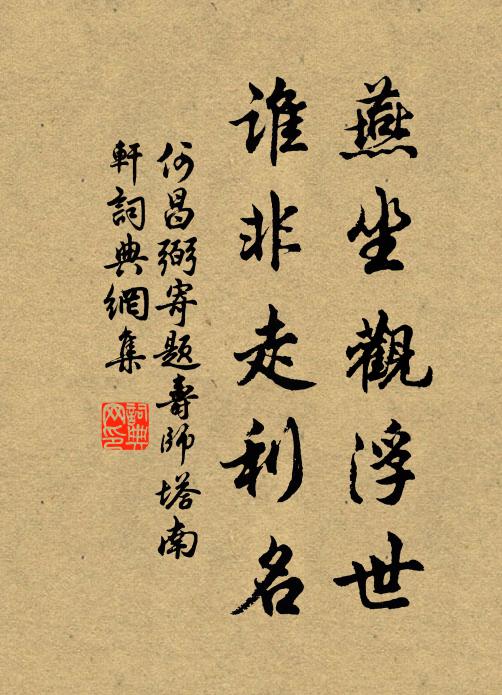 燕坐觀浮世
誰非走利名
何昌弼寄題壽師塔南
軒詞典網集
詞典网印